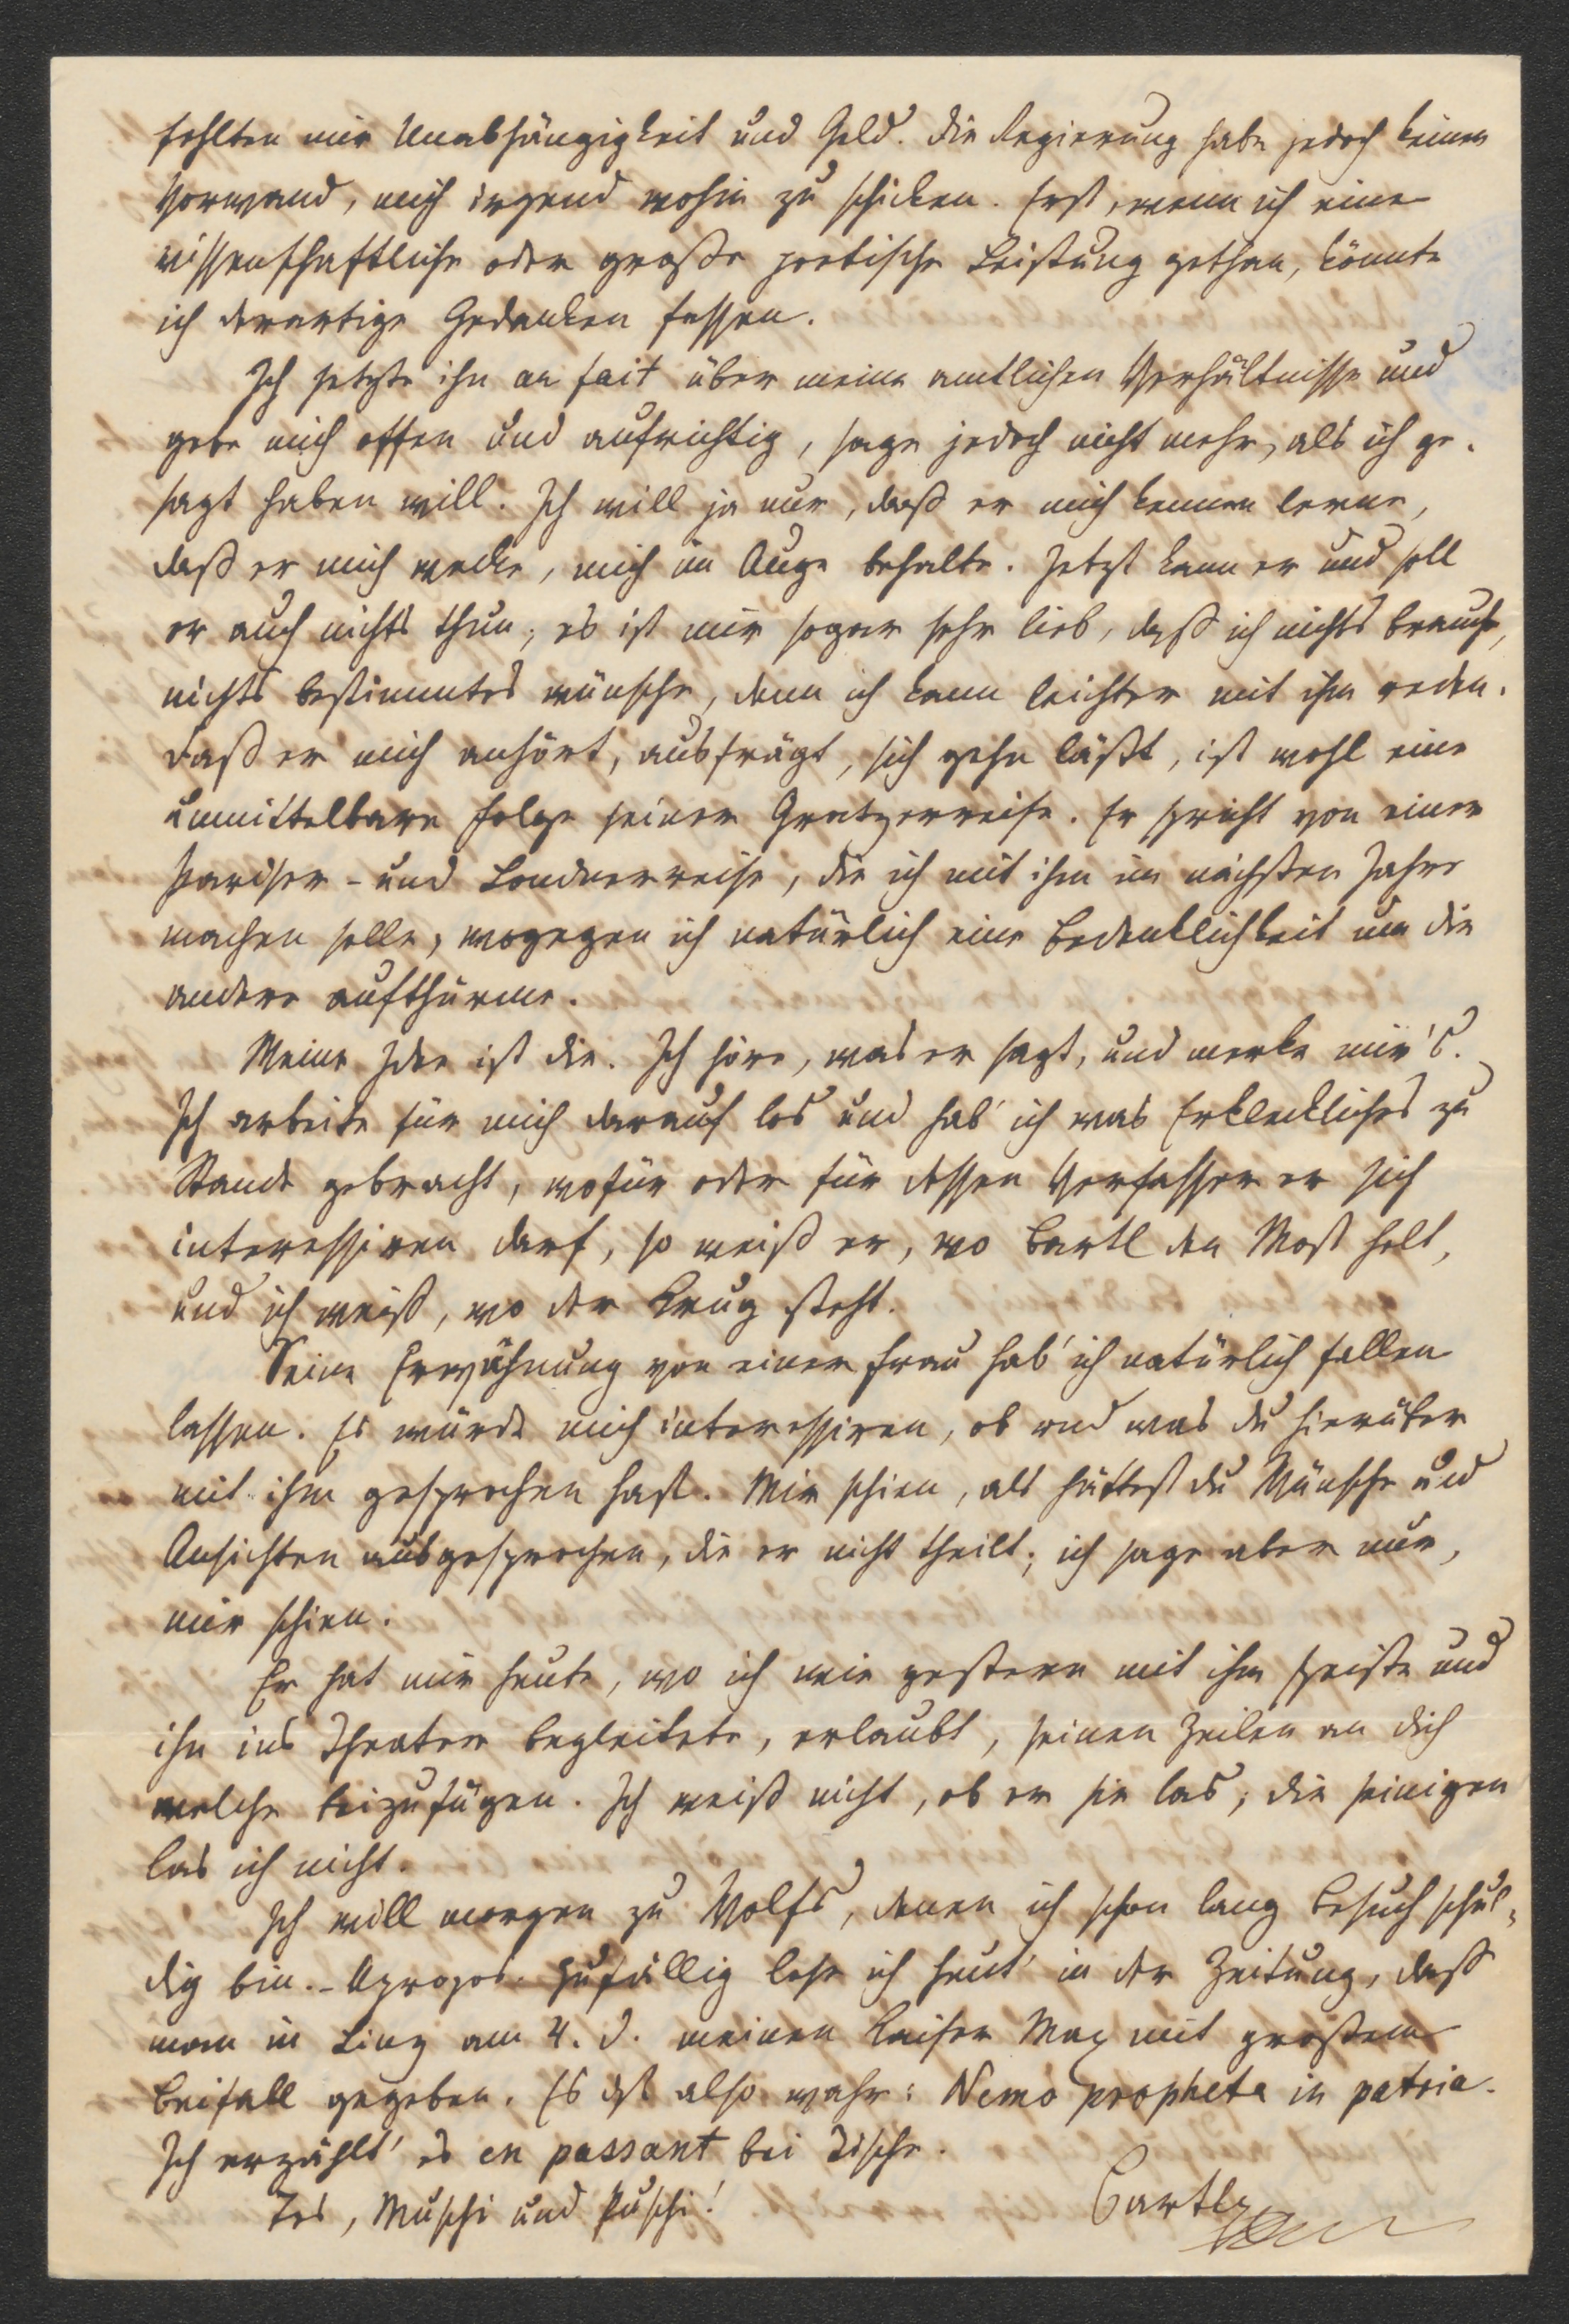 fehlten mir Unabhängigkeit und Geld. Die Regierung habe jedoch keinen
Vorwand, mich irgend wohin zu schicken. Erst, wenn ich eine
wissenschaftliche oder große poetische Leistung gethan, könnte
ich derartige Gedanken fassen.
Ich setzte ihn au fait über meine amtlichen Verhältnisse und
gebe mich offen und aufrichtig, sage jedoch nicht mehr, als ich ge-
sagt haben will. Ich will ja nur, daß er mich kennen lerne,
daß er mich merke, mich im Auge behalte. Jetzt kann er und soll
er auch nichts thun, es ist mir sogar sehr lieb, daß ich nichts brauche,
nichts bestimmtes wünsche, denn ich kann leichter mit ihm reden.
Daß er mich anhört, ausfrägt, sich gehn läßt, ist wohl eine
unmittelbare Folge seiner Gratzerreise. Er spricht von einer
Pariser- und Londnerreise, die ich mit ihm im nächsten Jahre
machen solle, wogegen ich natürlich eine Bedenklichkeit um die
andere aufthürme.
Meine Idee ist die. Ich höre, was er sagt, und merke mir's.
Ich arbeite für mich darauf los und hab' ich was Erkleckliches zu
Stande gebracht, wofür oder für dessen Verfasser er sich
interessiren darf, so weiß er, wo Bartl den Most holt,
und ich weiß, wo der Krug steht.
Seine Erwähnung von einer Frau hab' ich natürlich fallen
lassen. Es würde mich interessiren, ob und was du hierüber
mit ihm gesprochen hast. Mir schien, als hättest du Wünsche und
Ansichten ausgesprochen, die er nicht theilt; ich sage aber nur,
mir schien.
Er hat mir heute, wo ich wie gestern mit ihm speiste und
ihn ins Theater begleitete, erlaubt, seinen Zeilen an dich
welche beizufügen. Ich weiß nicht, ob er sie las; die seinigen
las ich nicht.
Ich will morgen zu Wolfs, denen ich schon lang Besuch schul-
dig bin. - Apropos. Zufällig lese ich heut' in der Zeitung, daß
man in Linz am 4. d. meinen Kaiser Max mit großem
Beifall gegeben. Es ist also wahr: Nemo propheta in patria.
Ich erzählt' es en passant bei Tische.
Muschi und Puschi!